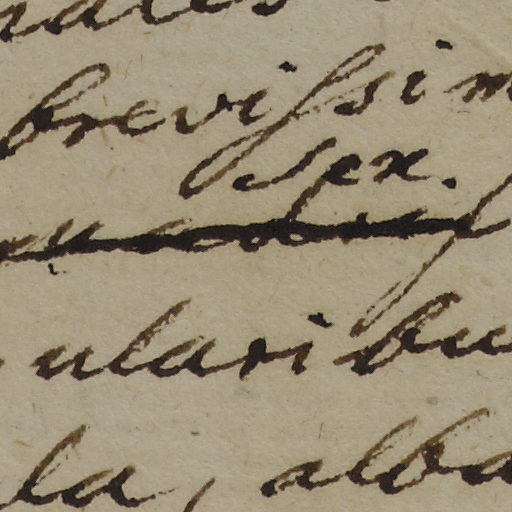 brevissim
sex.
ularibu
la, alba